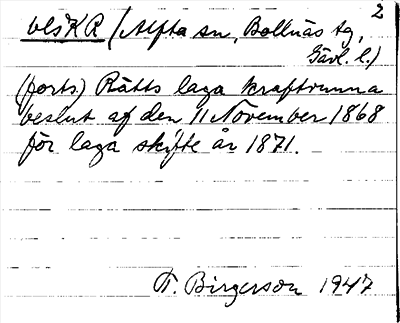 2
vlsKR (Alfta sn, Bollnäs tg,
Gävl. l.)
(forts.) Rätts laga kraftvunna
beslut af den 11 November 1868
för laga skifte år 1871.
T. Birgerson 1947